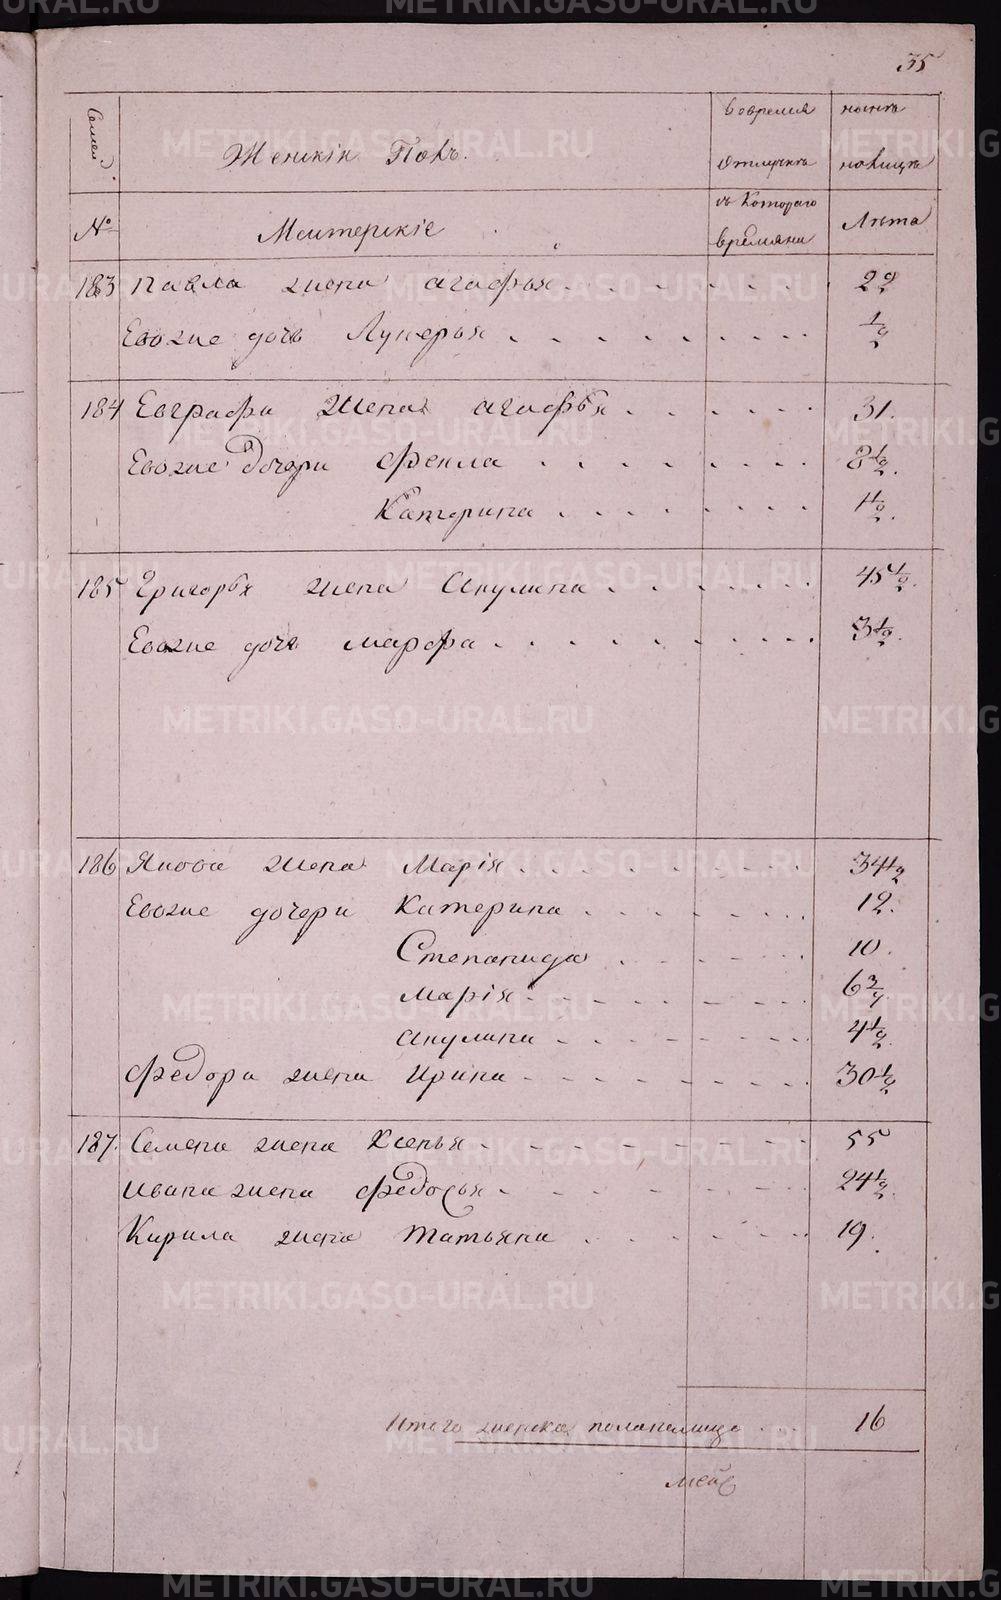 35
Семей
Женскiй Полъ.
вовремя
ныне
отлучке
налицо
№
Мастерскiе
съ Котораго
времяни
Лѣта
183 Павла жена агафья 22
Евоже дочь Лукерья 1/2
184 Евграфа жена агафья 31.
Евоже дочери Фекла 8 1/2.
Катерина 1 1/2.
185 Григорья жена Акулина 45 1/2.
Евоже дочь марфа 3 1/2.
186 Якова жена Марiя 34 1/2
Евоже дочери Катерина 12.
Степанида 10.
Марiя 6 3/4
акулина 4 1/2.
Федора жена Ирина 30 1/2
187. Семена жена Ксенья 55
Ивана жена Федосья 24 1/2.
Кирила жена Татьяна 19.
Итого женска поланалицо 16
METRIKI.GASO-URAL.RU